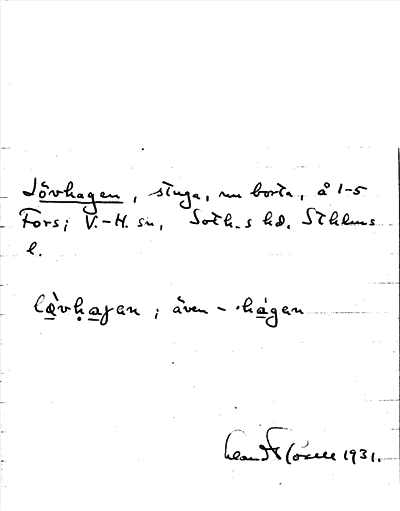 Lövhagen, stuga, nu borta, å 1-5
Fors; V.-H. sn, Soth.s hd. Sthlms
l.
lǜvhagen; även - hágen
1931.